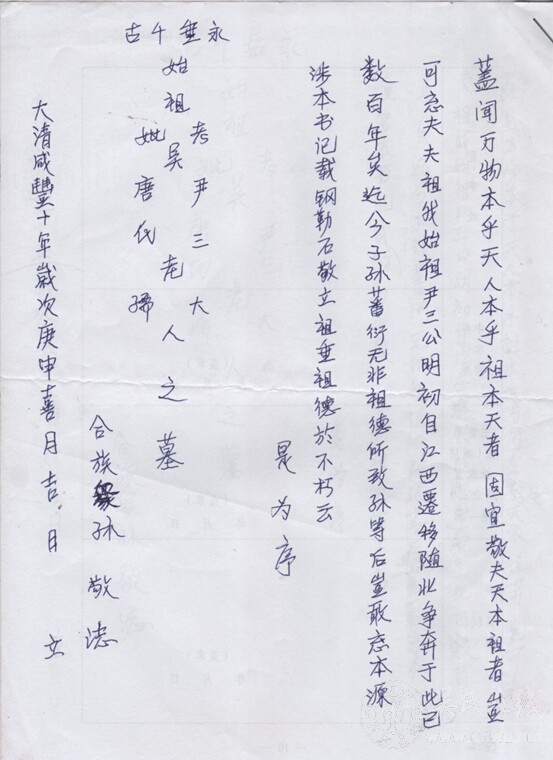 盖闻万物本乎天人本乎祖本天者固宜敬夫天本祖者岂
可忘夫夫祖我始祖尹三公明初自江西迁移随北争奔于此已
数百年矣迄今子孙蕃衍无非祖德所致孙等后岂敢忘本源
涉本书记载钢勒石敬立祖垂祖德於不朽云
是为序
永垂千古
考尹三大
始祖吴老人之墓
妣唐氏孺
合族众孙敬志
大清咸豐十年歲次庚申喜月吉日立